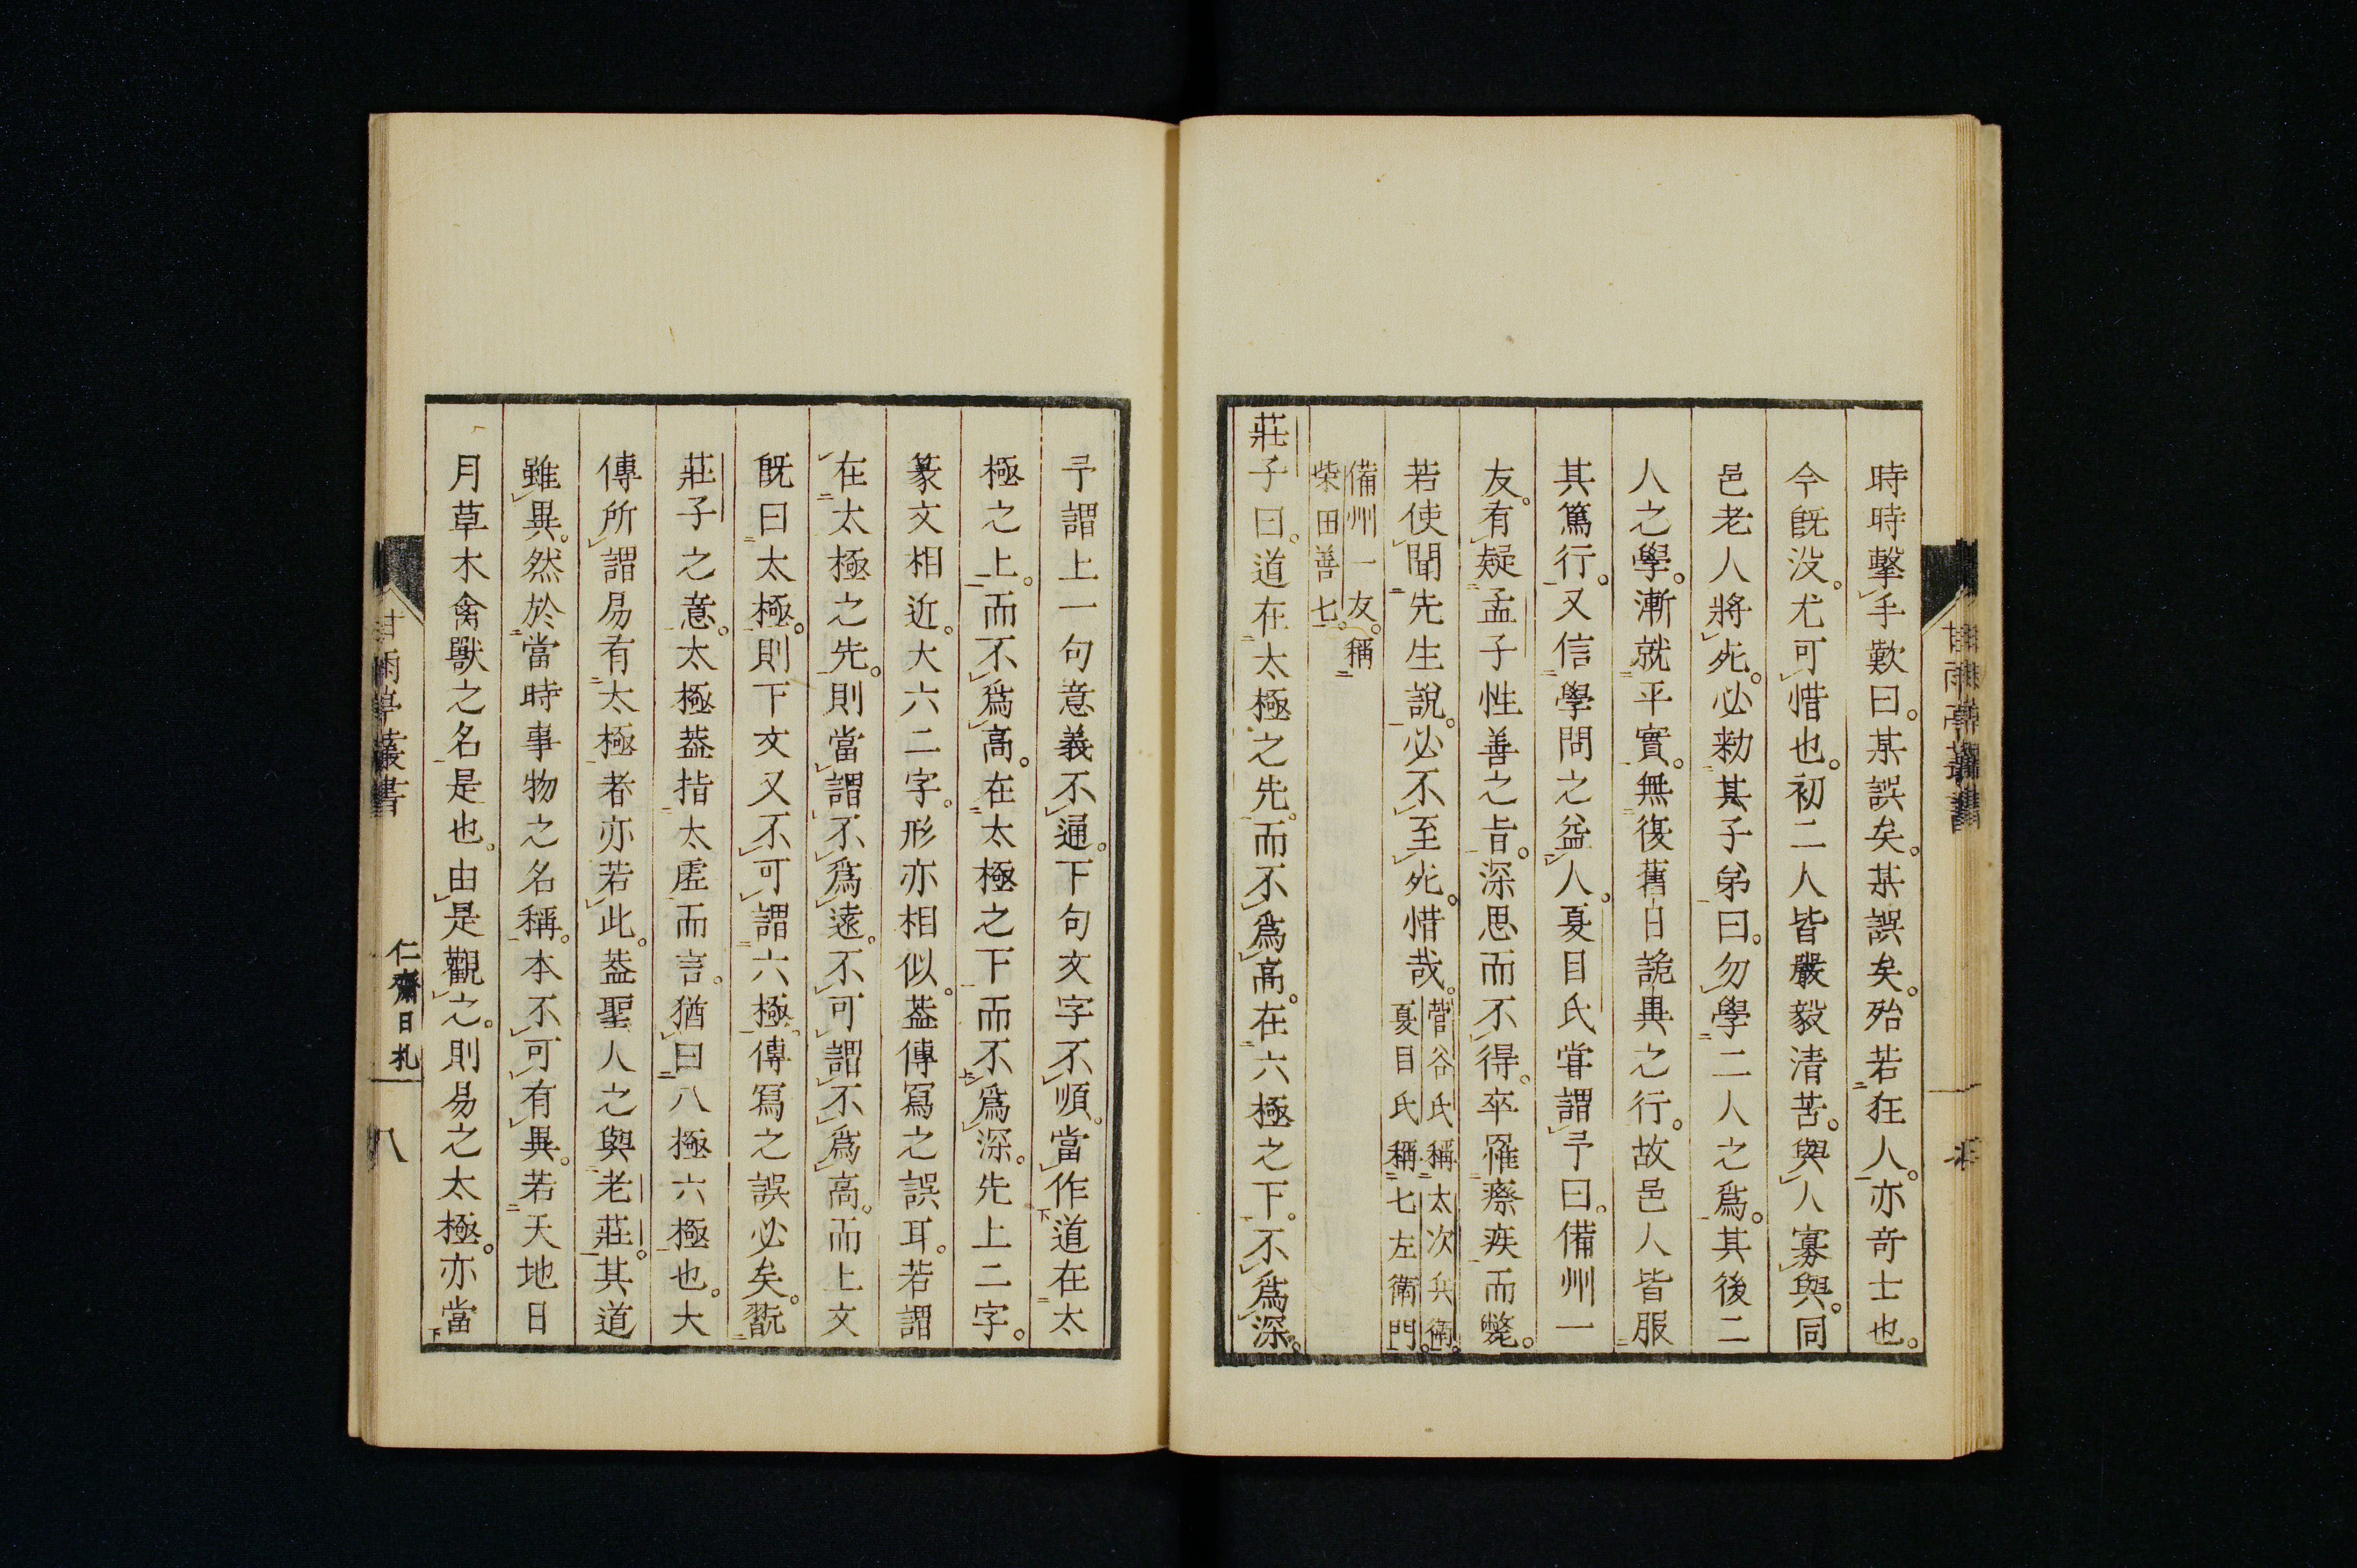 時時擊手歎曰。某誤矣。某誤矣。殆若狂人。亦奇士也。
今既没。尤可惜也。初二人皆嚴毅清苦。與人寡與。同
邑老人將死。必勑其子弟曰。勿學二人之爲。其後二
人之學。漸就平實。無復舊日詭異之行。故邑人皆服
其篤行。又信學問之益人。夏目氏甞謂予曰。備州一
友。有疑孟子性善之旨。深思而不得。卒罹瘵疾而斃。
若使聞先生說。必不至死。惜哉。菅谷氏稱太次兵衞。
夏目氏稱七左衞門。
備州一友。稱
柴田善七。
莊子曰。道在太極之先。而不爲高。在六極之下。不爲深。
予謂上一句意義不通。下句文字不順。當作道在太
極之上。而不爲高。在太極之下而不爲深。先上二字。
篆文相近。大六二字。形亦相似。蓋傳寫之誤耳。若謂
在太極之先。則當謂不爲遠。不可謂不爲高。而上文
既曰太極。則下文又不可謂六極。傳寫之誤必矣。翫
莊子之意。太極蓋指太虛而言。猶曰八極六極也。大
傳所謂易有太極者亦若此。蓋聖人之與老莊。其道
雖異。然於當時事物之名稱。本不可有異。若天地日
月草木禽獸之名是也。由是觀之。則易之太極。亦當
甘雨亭叢書
仁齋日札
八